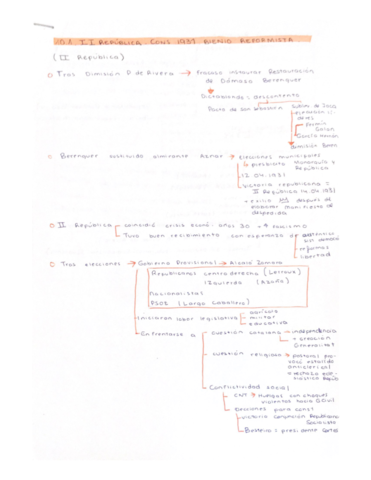 II REPÚBLICA CONS 1931 BIENIO REFORMISTA
(II República)
Tras Dimisión P. de Rivera → Fracaso instaurar Restauración
de Dámaso
Berenguer
Dictablanda: descontento
Pacto de San Sebastián
Galán
García
Dimisión Beren
Berenguer sustituido almirante Aznar → Elecciones municipales
plebiscito Monarquía o
República
12.04.1931
victoria republicana =
II República 14.04.1931
exilio después de
elaborar manifiesto de
despedida
II República coincidió crisis econó. años 30
Tuvo buen recibimiento con esperanza de
reformas
libertad
Tras elecciones → Gobierno Provisional → Alcalá Zamora
Republicanos centro derecha (Lerroux)
Izquierda (Azaña)
Nacionalistas
PSOE (Largo Caballero)
Iniciaron labor legislativa
agrícola
militar
educativa
Enfrentarse a
cuestión catalana → independencia
→ creación
Generalitat
cuestión religiosa → pastoral
anticlerical
Conflictividad social
CNT → Huelgas con choques
violentos hacia G.Civil
Elecciones para const
victoria Conjunción Republicano
Socialista
Besteiro = presidente Cortes